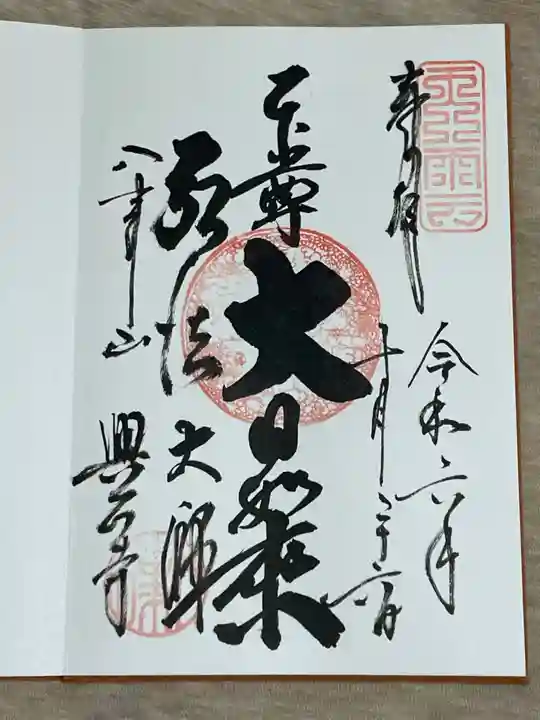 奉拝
令和六年
十月二十六日
本尊
大日如来
弘法大師
八事山
興正寺